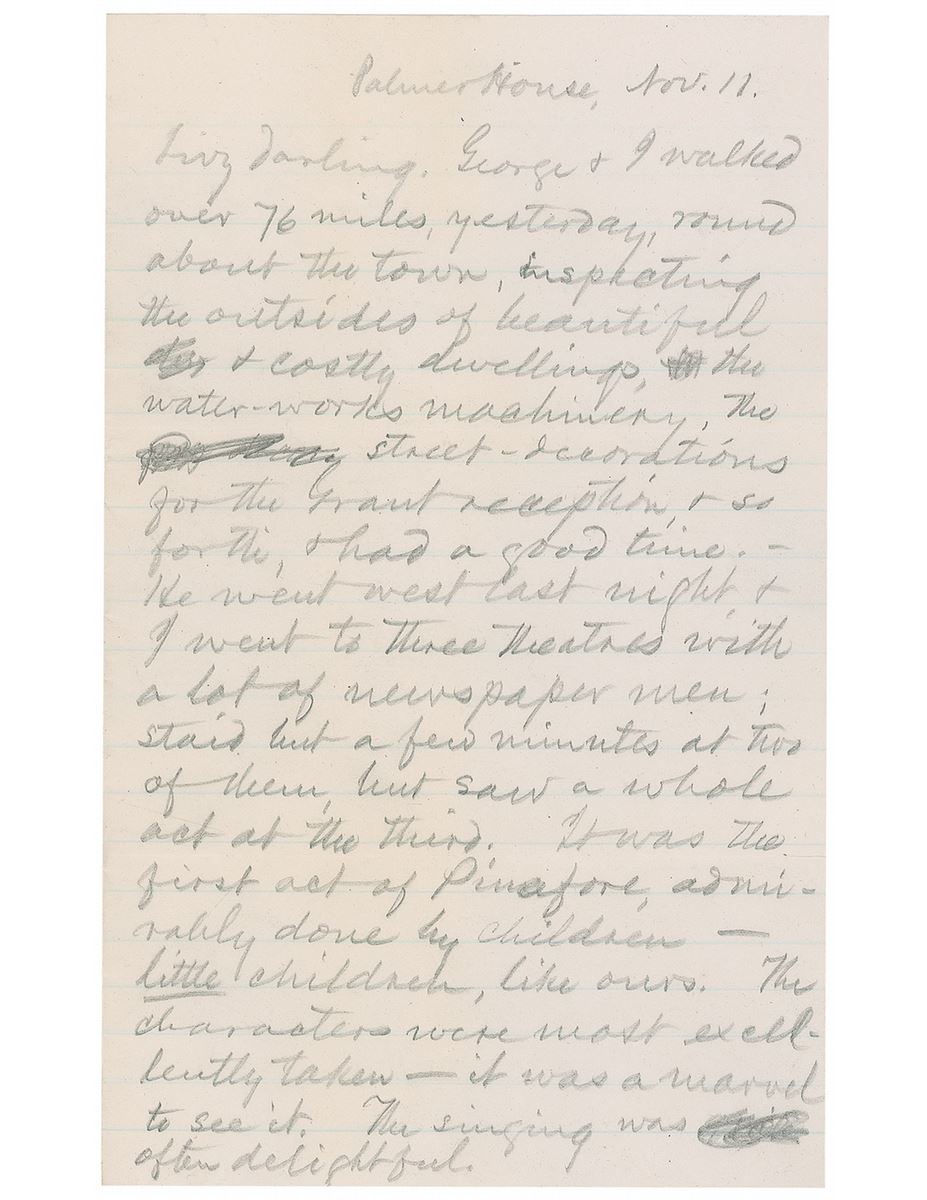 Palmer House, Nov. 11.
Livy Darling. George & I walked
over 76 miles, yesterday, round
about the town, inspecting
the outsides of beautiful
& costly dwellings, the
water-works machinery, the
street-decorations
for the Grant reception, & so
forth, & had a good time. –
He went west last night, &
I went to three theatres with
a lot of newspaper men;
staid but a few minutes at two
of them, but saw a whole
act at the third. It was the
first act of Pinafore, admi-
rably done by children —
little children, like ours. The
characters were most excel-
lently taken — it was a marvel
to see it. The singing was
often delightful.